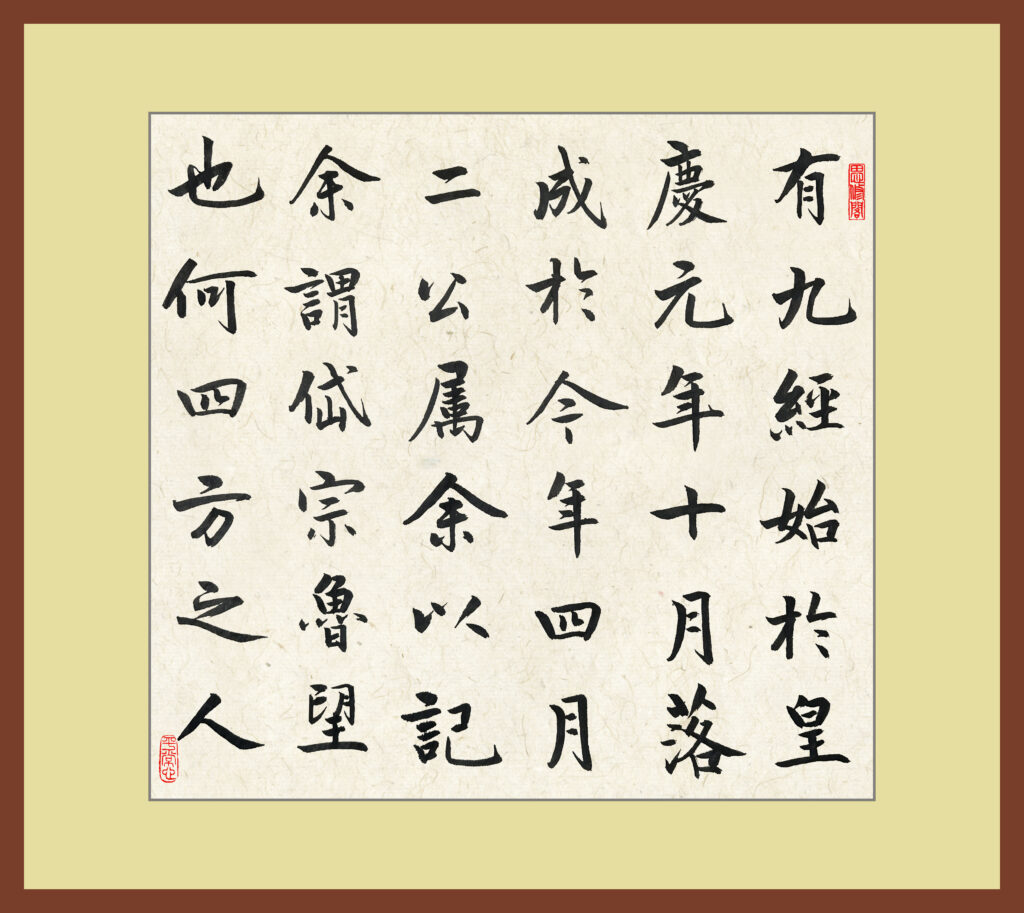 思修閣
有九經始於皇
慶元年十月落
成於今年四月
二公属余以記
余謂岱宗魯望
也何四方之人
平常心